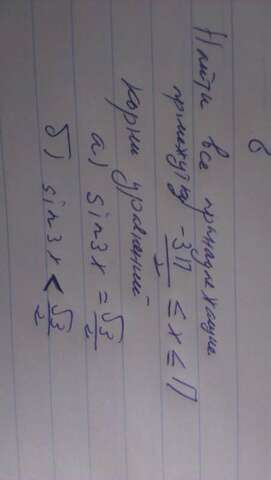 Найти все принадлежащие
промежутку -3π/2 ≤ x ≤ π
корни уравнений
а) sin3x = √3/2
б) sin3x < √3/2